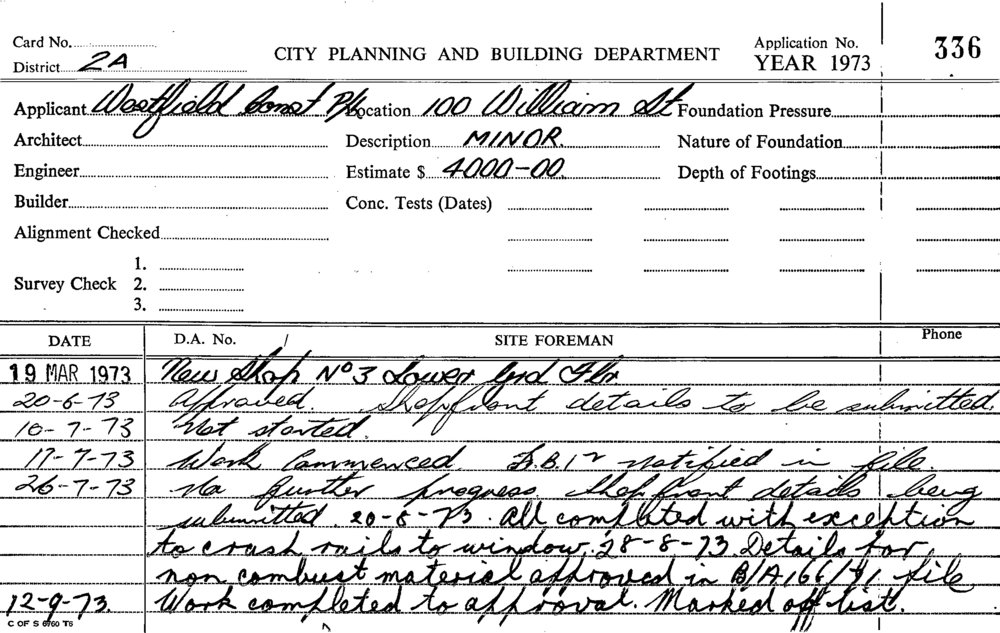 Card No.
District 2A
CITY PLANNING AND BUILDING DEPARTMENT
Application No.
YEAR 1973
336
Applicant Westfield Const P/L Location 100 William St Foundation Pressure
Architect Description MINOR. Nature of Foundation
Engineer Estimate $ 4000-00. Depth of Footings
Builder Conc. Tests (Dates)
Alignment Checked
1.
Survey Check 2.
3.
DATE D.A. No. / SITE FOREMAN Phone
19 MAR 1973 New Shop No 3 Lower Grd Flr
20-6-73 Approved. Shopfront details to be submitted.
10-7-73 Not started.
17-7-73 Work Commenced notified in file.
26-7-73 No further progress Shopfront details being
submitted. 20-8-73. All completed with exception
to crash rails to window. 28-8-73 Details for
non combust material approved in B/A 166/71 file
12-9-73. Work completed to approval. Marked off list.
C OF S 6760 T6